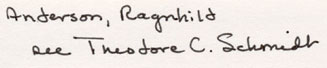 Anderson, Ragnhild
see Theodore C. Schmidt